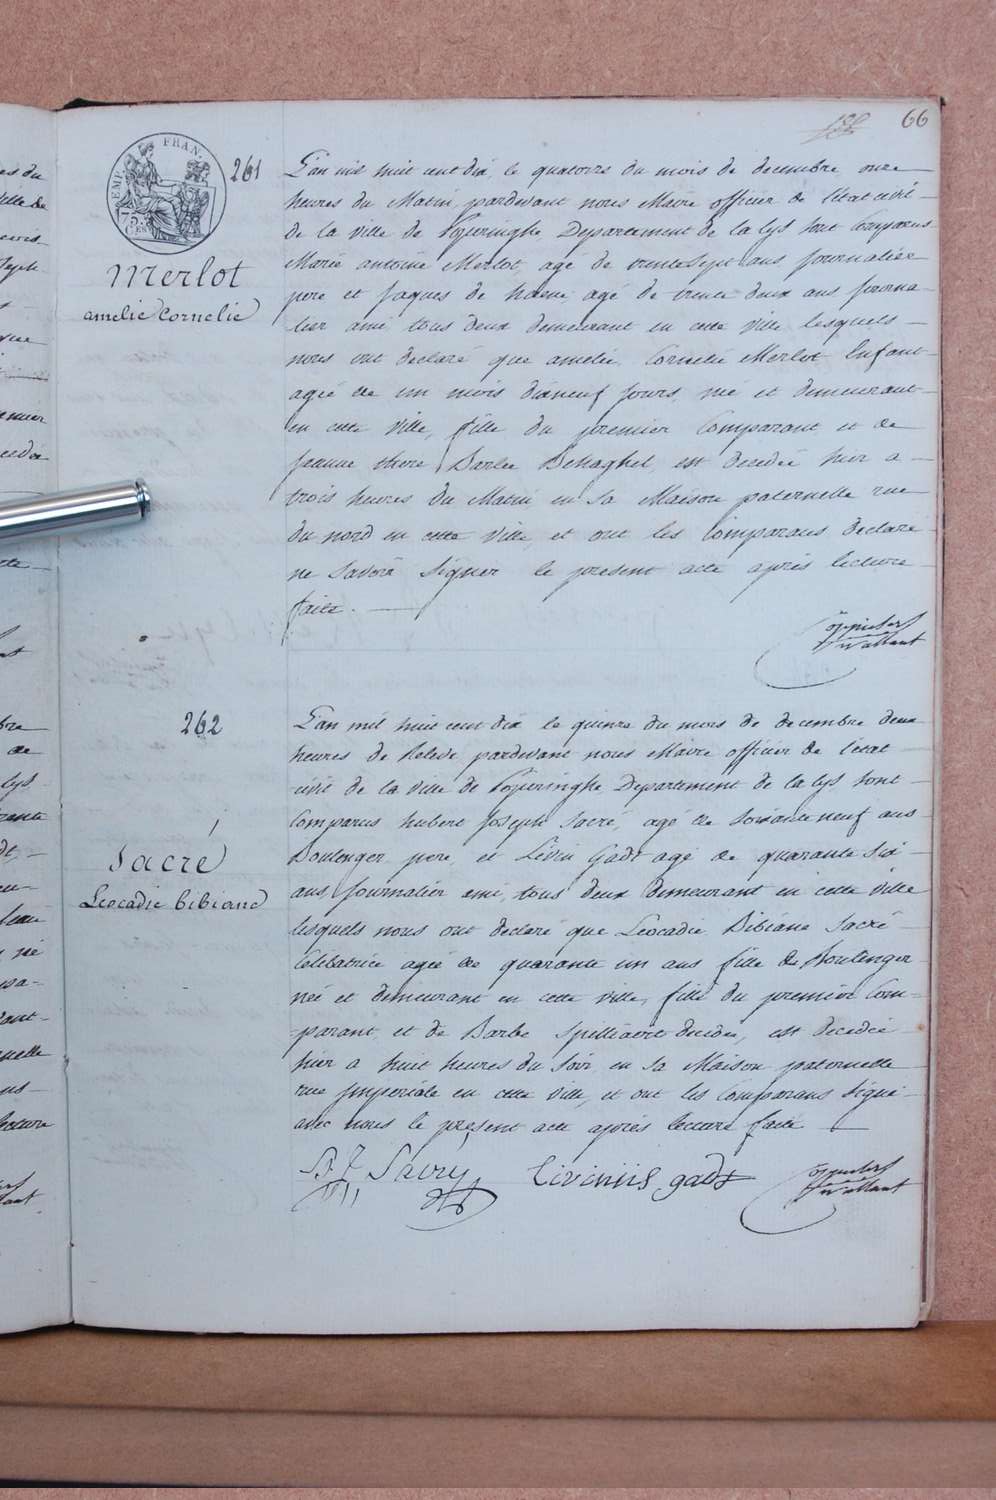 66
EMP. FRAN.
75.
CES
261
Merlot
amelie Cornelie
L'an mil huit cent dix, le quatorze du mois de decembre onze
heures du Matin, pardevant nous Maire officier de l'état civil
de la ville de Poperinghe, Departement de la lys sont Comparus
Marie antoine Merlot, agé de trente Sept ans Journalier
pere et Jaques de haene, agé de trente deux ans Journa-
lier ami tous deux demeurant en cette ville lesquels
nous ont declaré que amelie Cornelie Merlot Enfant
agée de un mois dixneuf jours, née et demeurant
en cette Ville, fille du premier Comparant et de
Jeanne there Barbe Behaghel est decedée hier a
trois heures du Matin en sa Maison paternelle rue
du nord en cette Ville, et ont les Comparans declaré
ne Savoir Signer le present acte après lecture
faite.
262
Sacré
Leocadie bibiane
L'an mil huit cent dix le quinze du mois de decembre deux
heures de Relevé, pardevant nous Maire officier de l'état
civil de la ville de Poperinghe Departement de la lys sont
Comparus hubert Joseph Sacré, agé de Soixante neuf ans
Boulenger pere, et Lévin Gadt agé de quarante Six
ans Journalier ami, tous deux demeurant en cette ville
lesquels nous ont declaré que Leocadie Bibiane Sacré
Celibatrice agée de quarante un ans fille de Boulenger
née et demeurant en cette ville, fille du premier Com-
-parant et de Barbe Spilliaert decidée, est decedée
hier a huit heures du Soir en sa Maison paternelle
rue Imperiale en cette Ville, et ont les Comparans Signé
avec nous le present acte après lecture faite
livinus gadt